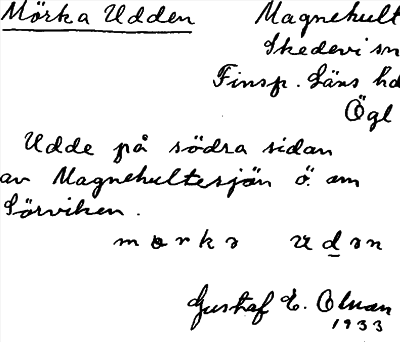 Mörka Udden Magnehult
Skedevi sn
Finsp. Läns hd
Ögl
Udde på södra sidan
av Magnehultesjön ö. om
Sörviken.
mørkə udən
Gustaf E.
1933